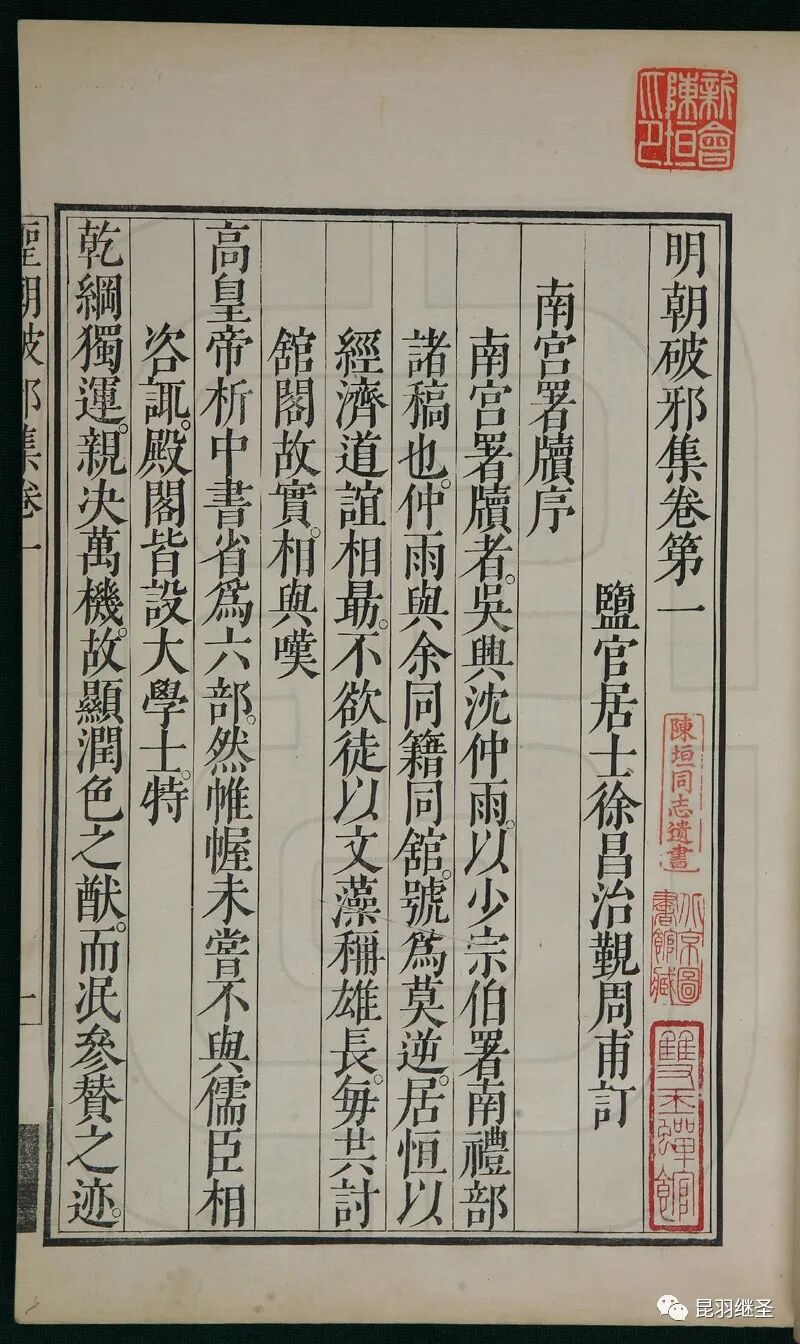 明朝破邪集卷第一
鹽官居士徐昌治覲周甫訂
南宮署牘序
南宮署牘者。吳興沈仲雨。以少宗伯署南禮部
諸稿也。仲雨與余同籍同舘。號爲莫逆。居恒以
經濟道誼相勗。不欲徒以文藻稱雄長。每共討
舘閣故實。相與嘆
高皇帝析中書省爲六部。然帷幄未嘗不與儒臣相
咨諏。殿閣皆設大學士。特
乾綱獨運。親决萬機。故顯潤色之猷。而泯參賛之迹。
聖朝破邪集卷一
一
新會陳垣之印
陳垣同志遺書
北京圖書館藏
雙玉蟬館
昆羽继圣